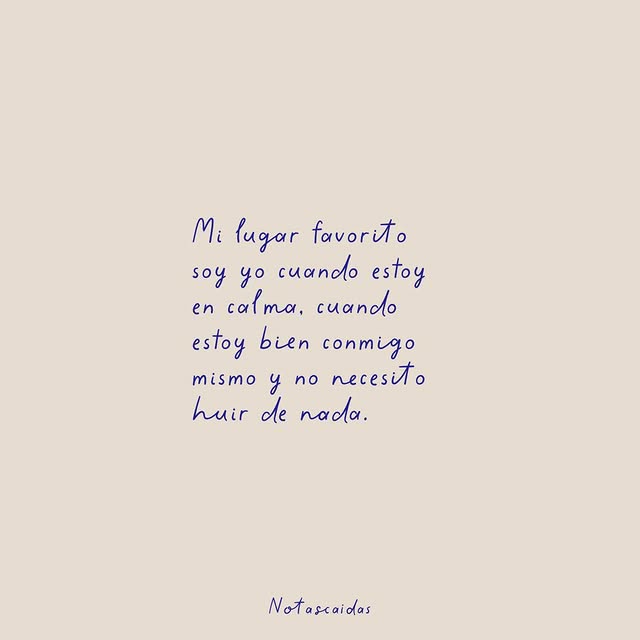 Mi lugar favorito
soy yo cuando estoy
en calma, cuando
estoy bien conmigo
mismo y no necesito
huir de nada.
Notascaidas